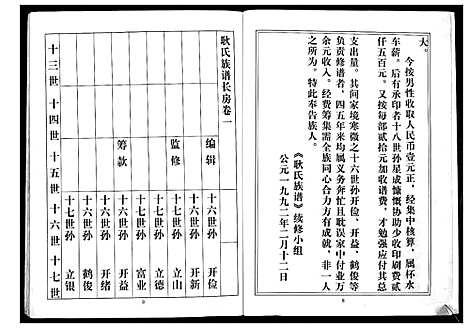 大。
今按男性收取人民币壹元正，经集中核算，属杯水
车薪。后有承印者十八世孙星成慷慨协助少收印刷费贰
仟五百元。又按每部贰拾元加收谱费，才勉强应付其总
支出量。其间家境寒微之十六世孙开俭、开益、鹤俊等已
负责修谱者，四五年来均属义务奔忙且耽误家中付业万
余元收入。经费筹集需全族同心合力方有成就，非一人
之所为。特此奉告族人。
《耿氏族谱》续修小组
公元一九九二年二月十二日
8
耿氏族谱长房卷一
编辑 十六世孙 开俭
十六世孙 开新
监修 十七世孙 立山
十七世孙 立德
十七世孙 富业
筹款 十六世孙 开益
十六世孙 开绪
十六世孙 鹤俊
十七世孙 立银
十三世 十四世 十五世 十六世 十七世
9